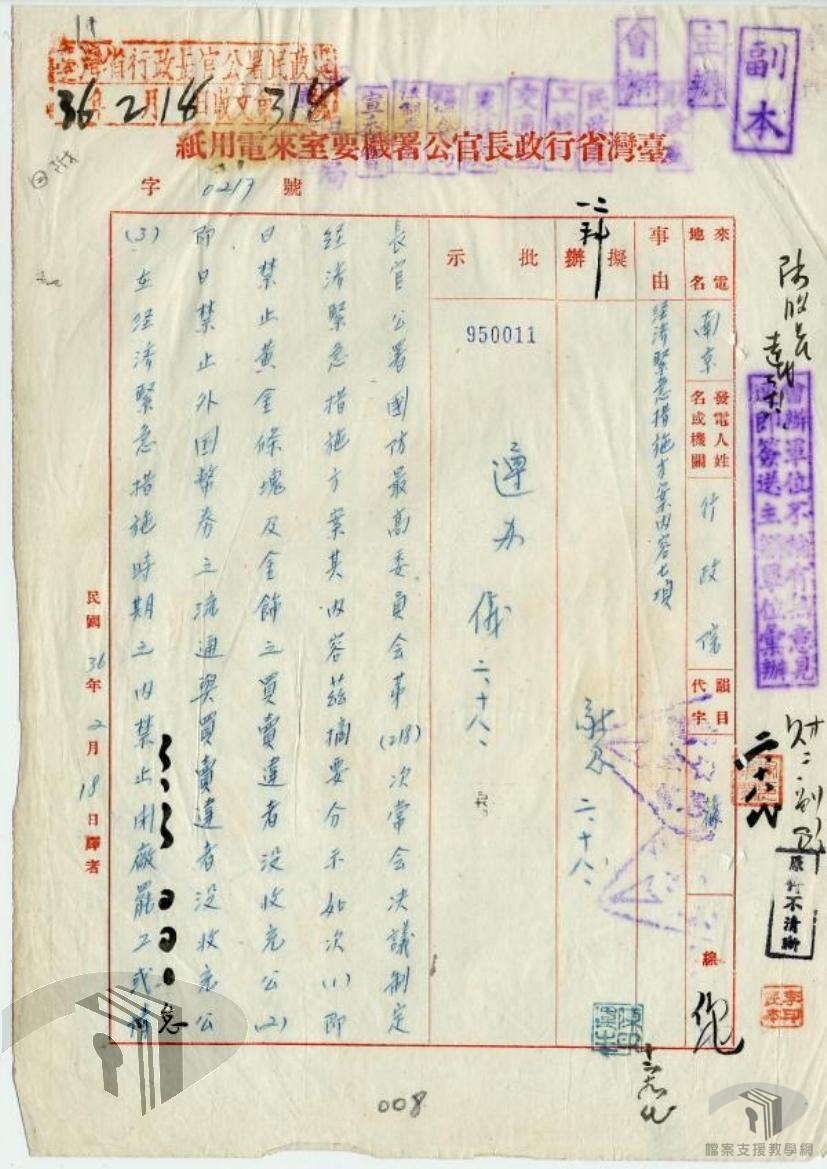 副本
主辦
會辦
臺灣省行政長官公署機要室來電用紙
36年2月18日收文
318
字 0217 號
來電地名 南京
發電人姓名或機關 行政院
韻目代字
事由
經濟緊急措施方案內容七項
擬辦
批示
950011
遵办 儀 二、十八、
二、十八、
長官公署國防最高委員会第(218)次常会決議制定
經濟緊急措施方案其內容茲摘要分示如次(1)即
日禁止黃金條塊及金飾之買賣違者沒收充公(2)
即日禁止外国幣券之流通與買賣違者沒收充公
(3)在經濟緊急措施時期之內禁止閉廠罷工或怠
民國36年2月18日譯者
會辦單位不擬有無意見
即簽送主辦單位彙辦
原件不清晰
008
檔案支援教學網